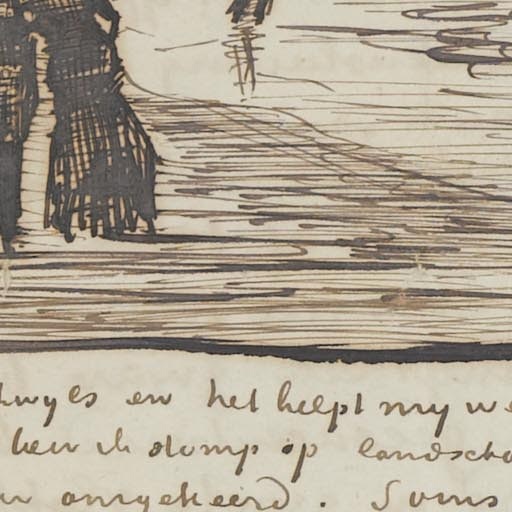 twyls en het helpt my we
ben ik stomp op landscha
omgekeerd. Soms